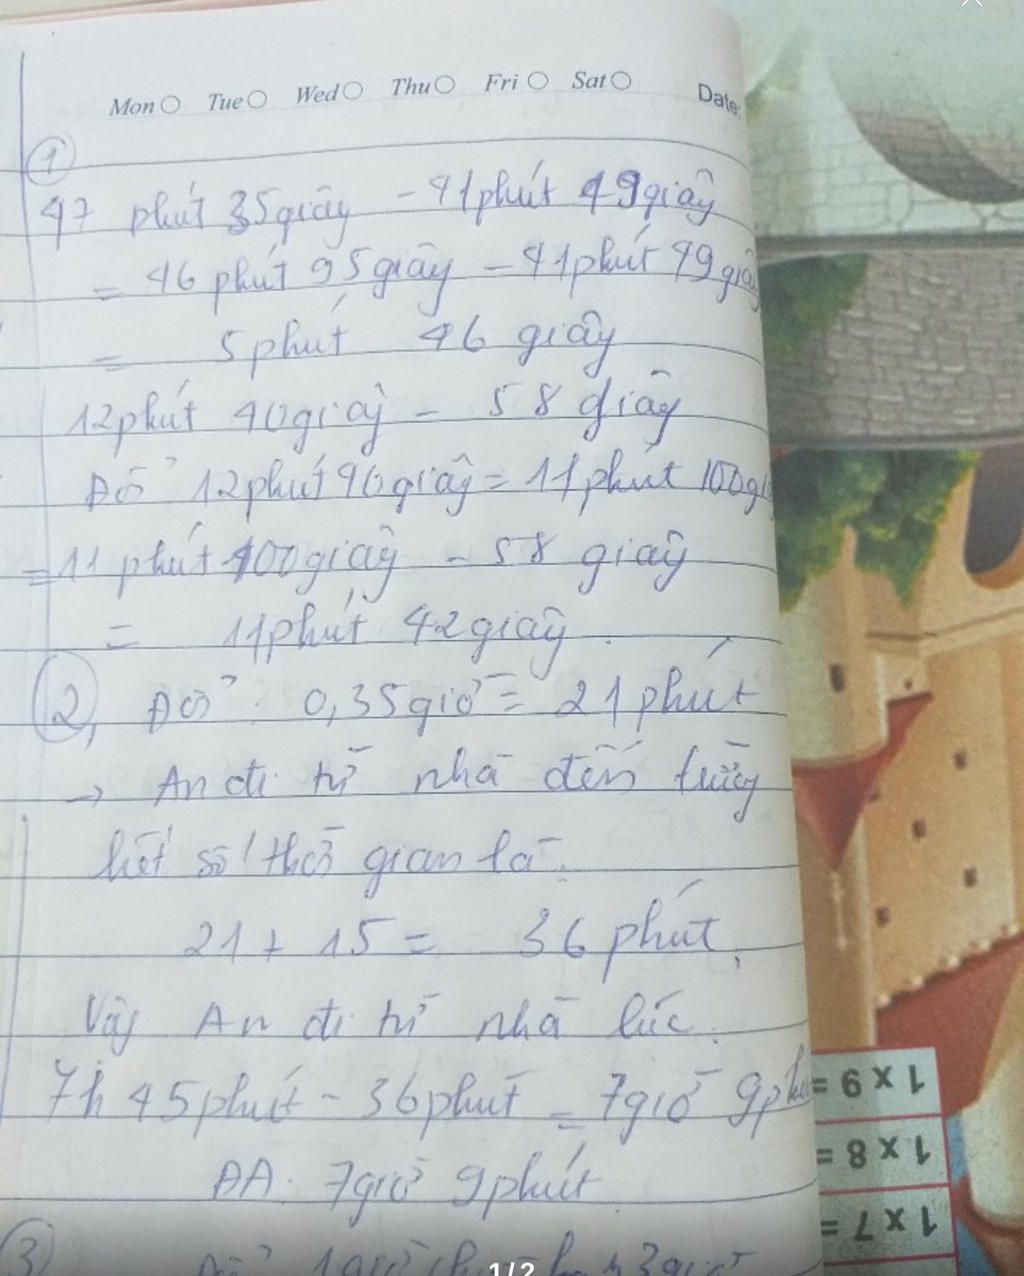 Mon Tue Wed Thu Fri Sat Date:
1
47 phút 35giây - 41phút 49giây
= 46 phút 95giây - 41phút 49giâ
= 5phút 46 giây
12phút 40giây - 58 giây
Đổi 12phút 40giây = 11phút 100gi
= 11 phút 100giây - 58 giây
= 11phút 42giây.
2, Đổi: 0,35giờ = 21phút
→ An đi từ nhà đến trường
hết số thời gian là:
21 + 15 = 36 phút,
Vậy An đi từ nhà lúc:
7h 45phút - 36phút = 7giờ 9ph
ĐA: 7giờ 9phút.
3 Đổi 1giờ
1/2
1 x 9 =
1 x 8 =
1 x 7 =